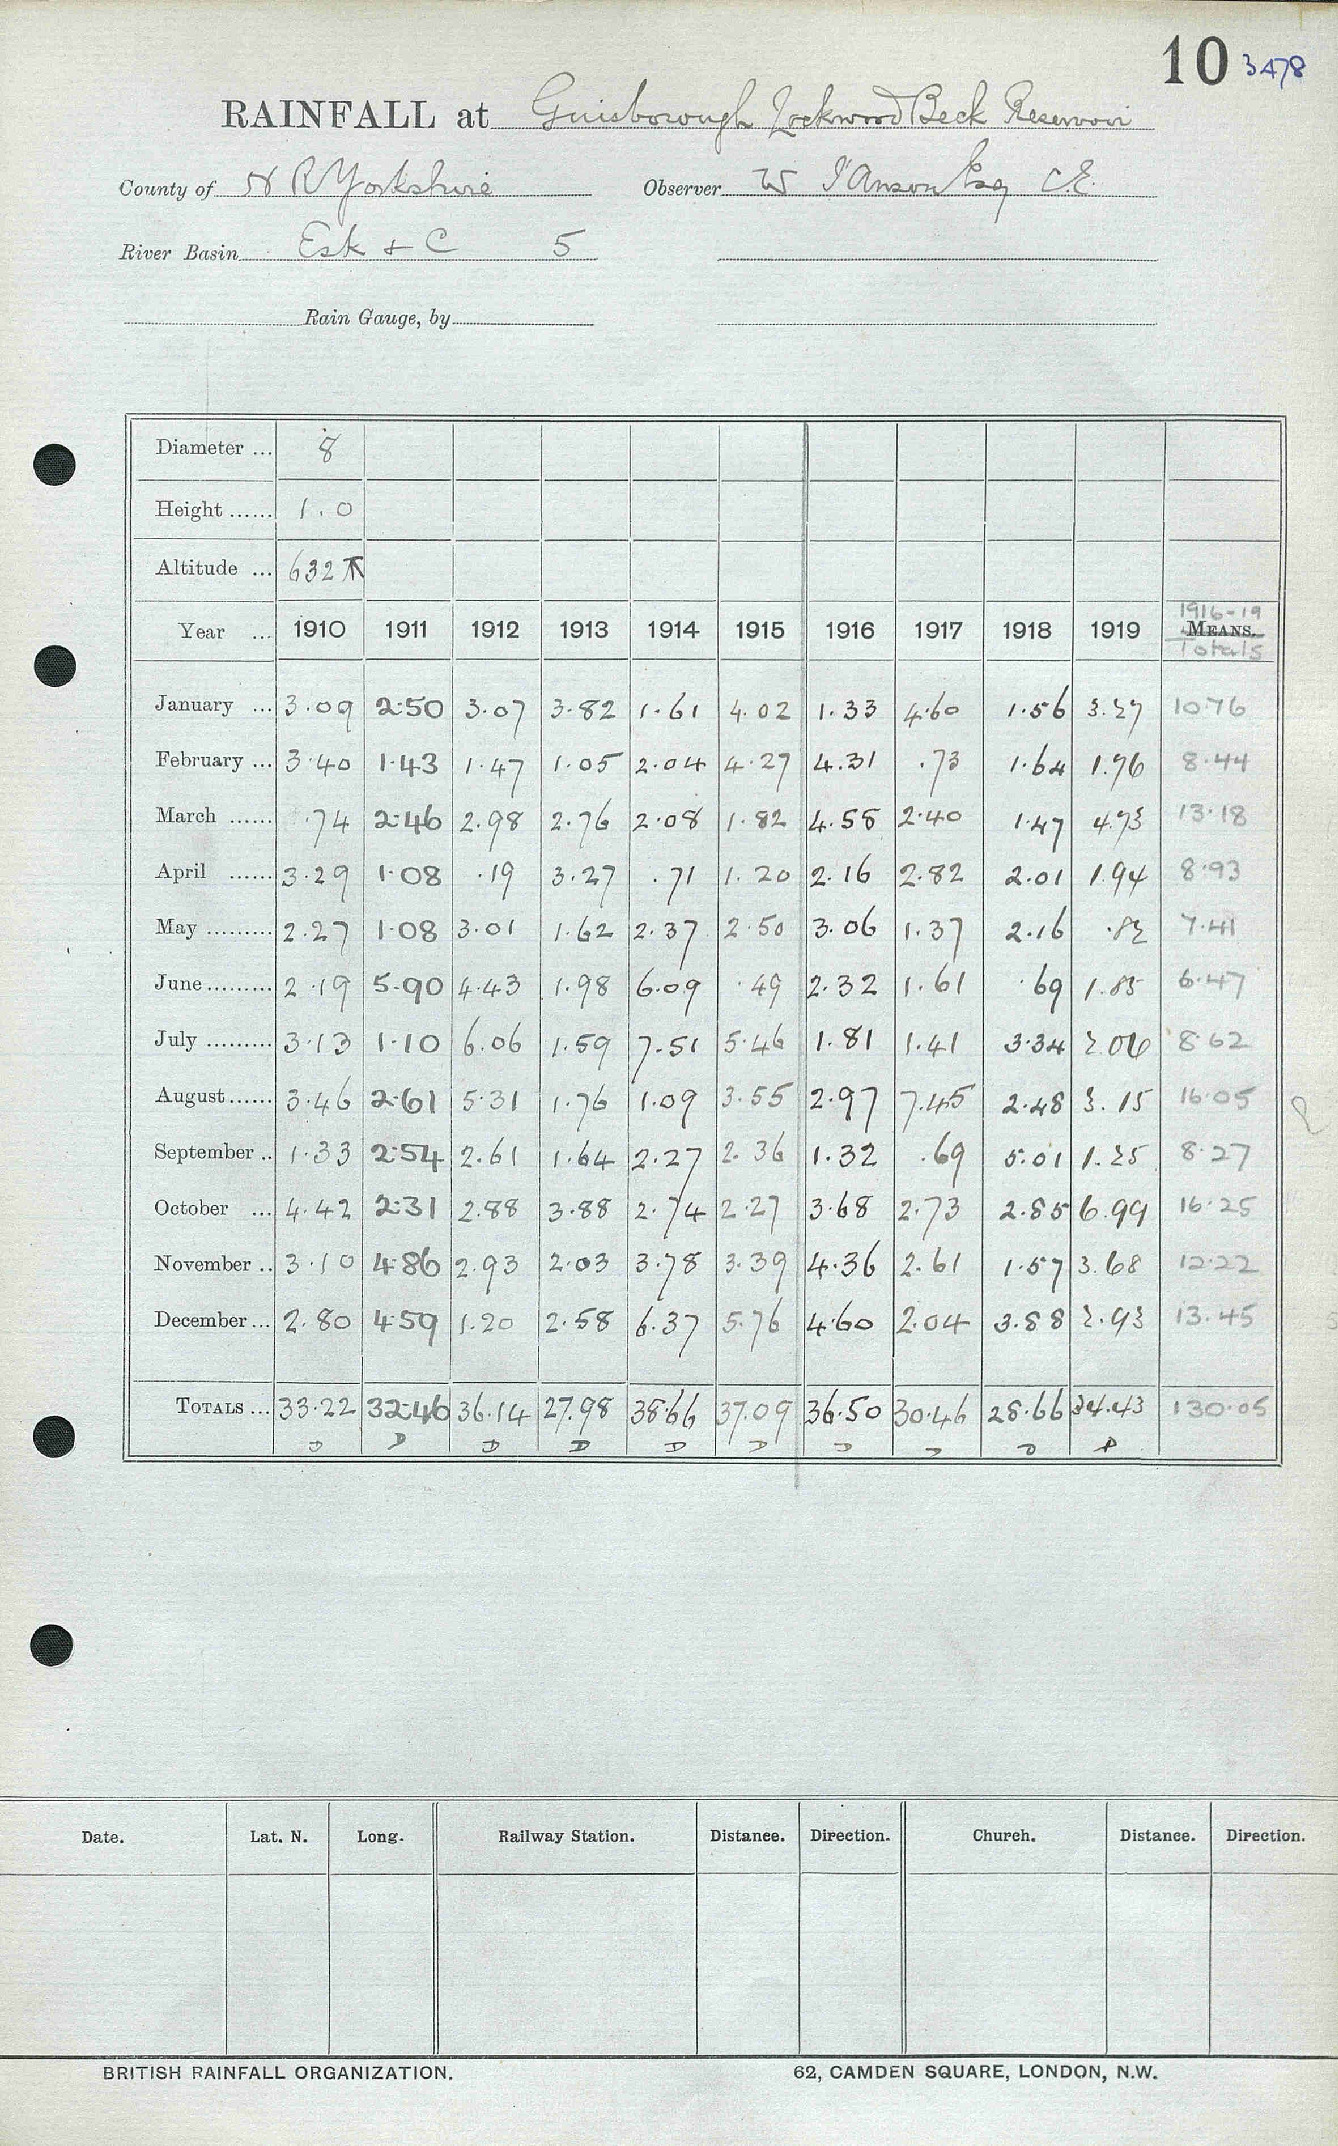 10 3478
RAINFALL at Guisborough Lockwood Beck Reservoir
County of N R Yorkshire Observer W I'Anson Esq C.E.
River Basin Esk & C 5
Rain Gauge, by
Diameter ... 8
Height ...... 1.0
Altitude ... 632
Year ... 1910 1911 1912 1913 1914 1915 1916 1917 1918 1919 1916-19 MEANS. Totals
January ... 3.09 2.50 3.07 3.82 1.61 4.02 1.33 4.60 1.56 3.27 10.76
February ... 3.40 1.43 1.47 1.05 2.04 4.27 4.31 .73 1.64 1.76 8.44
March ...... .74 2.46 2.98 2.76 2.08 1.82 4.58 2.40 1.47 4.73 13.18
April ...... 3.29 1.08 .19 3.27 .71 1.20 2.16 2.82 2.01 1.94 8.93
May ......... 2.27 1.08 3.01 1.62 2.37 2.50 3.06 1.37 2.16 .82 7.41
June ......... 2.19 5.90 4.43 1.98 6.09 .49 2.32 1.61 .69 1.85 6.47
July ......... 3.13 1.10 6.06 1.59 7.51 5.46 1.81 1.41 3.34 2.06 8.62
August ...... 3.46 2.61 5.31 1.76 1.09 3.55 2.97 7.45 2.48 3.15 16.05
September .. 1.33 2.54 2.61 1.64 2.27 2.36 1.32 .69 5.01 1.25 8.27
October ... 4.42 2.31 2.88 3.88 2.74 2.27 3.68 2.73 2.85 6.99 16.25
November .. 3.10 4.86 2.93 2.03 3.78 3.39 4.36 2.61 1.57 3.68 12.22
December ... 2.80 4.59 1.20 2.58 6.37 5.76 4.60 2.04 3.88 2.93 13.45
TOTALS ... 33.22 32.46 36.14 27.98 38.66 37.09 36.50 30.46 28.66 34.43 130.05
D D D D D D D D D D
Date. Lat. N. Long. Railway Station. Distance. Direction. Church. Distance. Direction.
BRITISH RAINFALL ORGANIZATION. 62, CAMDEN SQUARE, LONDON, N.W.